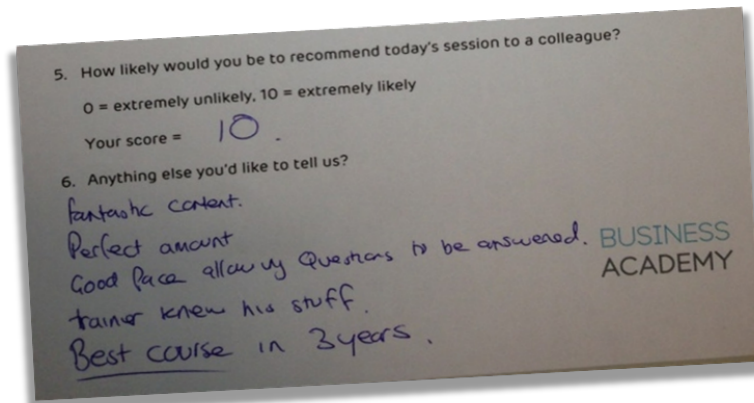 5. How likely would you be to recommend today's session to a colleague?
0 = extremely unlikely, 10 = extremely likely
Your score = 10.
6. Anything else you'd like to tell us?
fantastic content.
Perfect amount
Good Pace allowing Questions to be answered.
trainer knew his stuff.
Best course in 3 years.
BUSINESS
ACADEMY